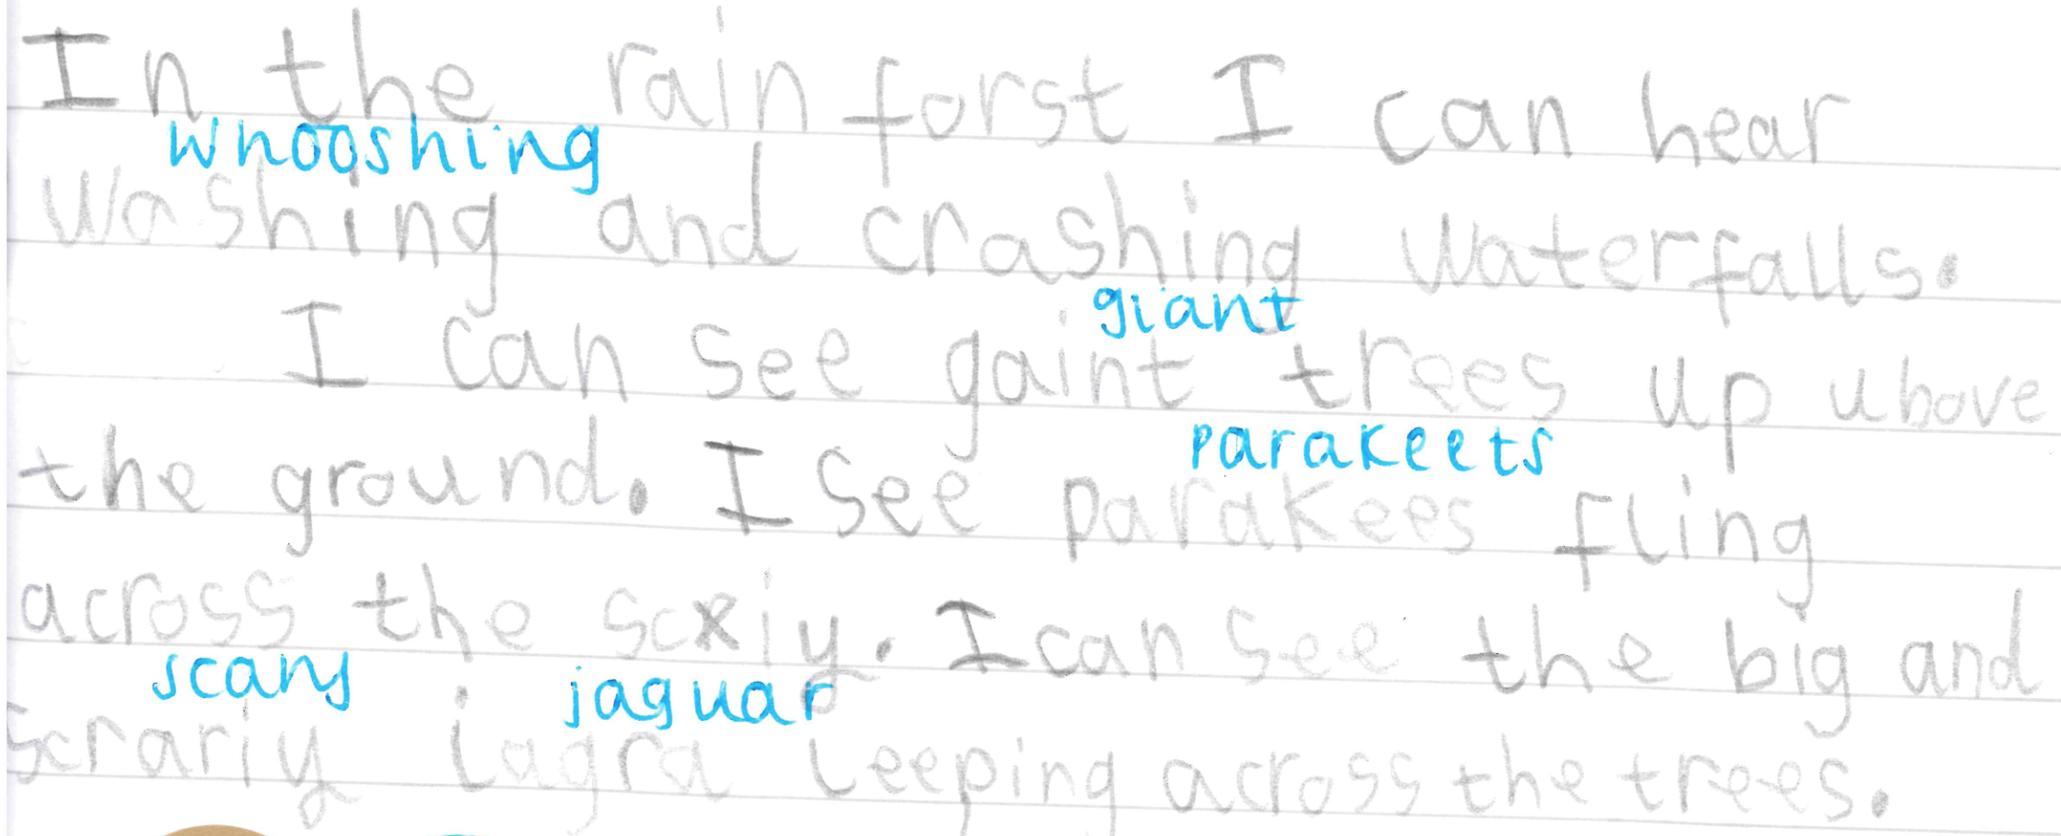 In the rain forst I can hear
whooshing
Washing and crashing waterfalls.
giant
I can see gaint trees up ubove
parakeets
the ground. I see parakees fling
across the scxiy. I can see the big and
scary jaguar
scrariy iagra leeping across the trees.